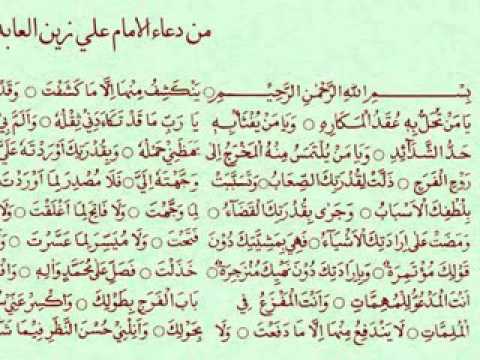 من دعاء الإمام علي زين العابد
بِسْمِ اللهِ الرَّحْمٰنِ الرَّحِيمِ ○
يَا مَنْ تُحَلُّ بِهِ عُقَدُ الْمَكَارِهِ ○ وَيَا مَنْ يُفْثَأُ بِهِ
حَدُّ الشَّدَائِدِ ○ وَيَا مَنْ يُلْتَمَسُ مِنْهُ الْمَخْرَجُ إِلَى
رَوْحِ الْفَرَجِ ○ ذَلَّتْ لِقُدْرَتِكَ الصِّعَابُ ○ وَتَسَبَّبَتْ
بِلُطْفِكَ الْأَسْبَابُ ○ وَجَرَى بِقُدْرَتِكَ الْقَضَاءُ ○
وَمَضَتْ عَلَى إِرَادَتِكَ الْأَشْيَاءُ ○ فَهِيَ بِمَشِيَّتِكَ دُونَ
قَوْلِكَ مُؤْتَمِرَةٌ ○ وَبِإِرَادَتِكَ دُونَ نَهْيِكَ مُنْزَجِرَةٌ ○
أَنْتَ الْمَدْعُوُّ لِلْمُهِمَّاتِ ○ وَأَنْتَ الْمَفْزَعُ فِي
الْمُلِمَّاتِ ○ لَا يَنْدَفِعُ مِنْهَا إِلَّا مَا دَفَعْتَ ○ وَلَا
يَنْكَشِفُ مِنْهَا إِلَّا مَا كَشَفْتَ ○ وَقَدْ
يَا رَبِّ مَا قَدْ تَكَأَّدَنِي ثِقْلُهُ ○ وَأَلَمَّ بِي
بَهَظَنِي حَمْلُهُ ○ وَبِقُدْرَتِكَ أَوْرَدْتَهُ عَلَيَّ
وَجَّهْتَهُ إِلَيَّ ○ فَلَا مُصْدِرَ لِمَا أَوْرَدْتَ
لِمَا وَجَّهْتَ ○ وَلَا فَاتِحَ لِمَا أَغْلَقْتَ ○
فَتَحْتَ ○ وَلَا مُيَسِّرَ لِمَا عَسَّرْتَ ○
خَذَلْتَ ○ فَصَلِّ عَلَى مُحَمَّدٍ وَآلِهِ ○
بَابَ الْفَرَجِ بِطَوْلِكَ ○ وَاكْسِرْ عَنِّي
بِحَوْلِكَ ○ وَأَنِلْنِي حُسْنَ النَّظَرِ فِيمَا